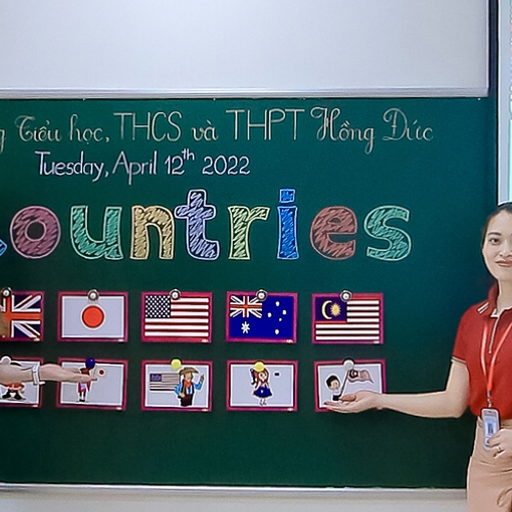 Tiểu học, THCS và THPT Hồng Đức
Tuesday, April 12th 2022
Countries